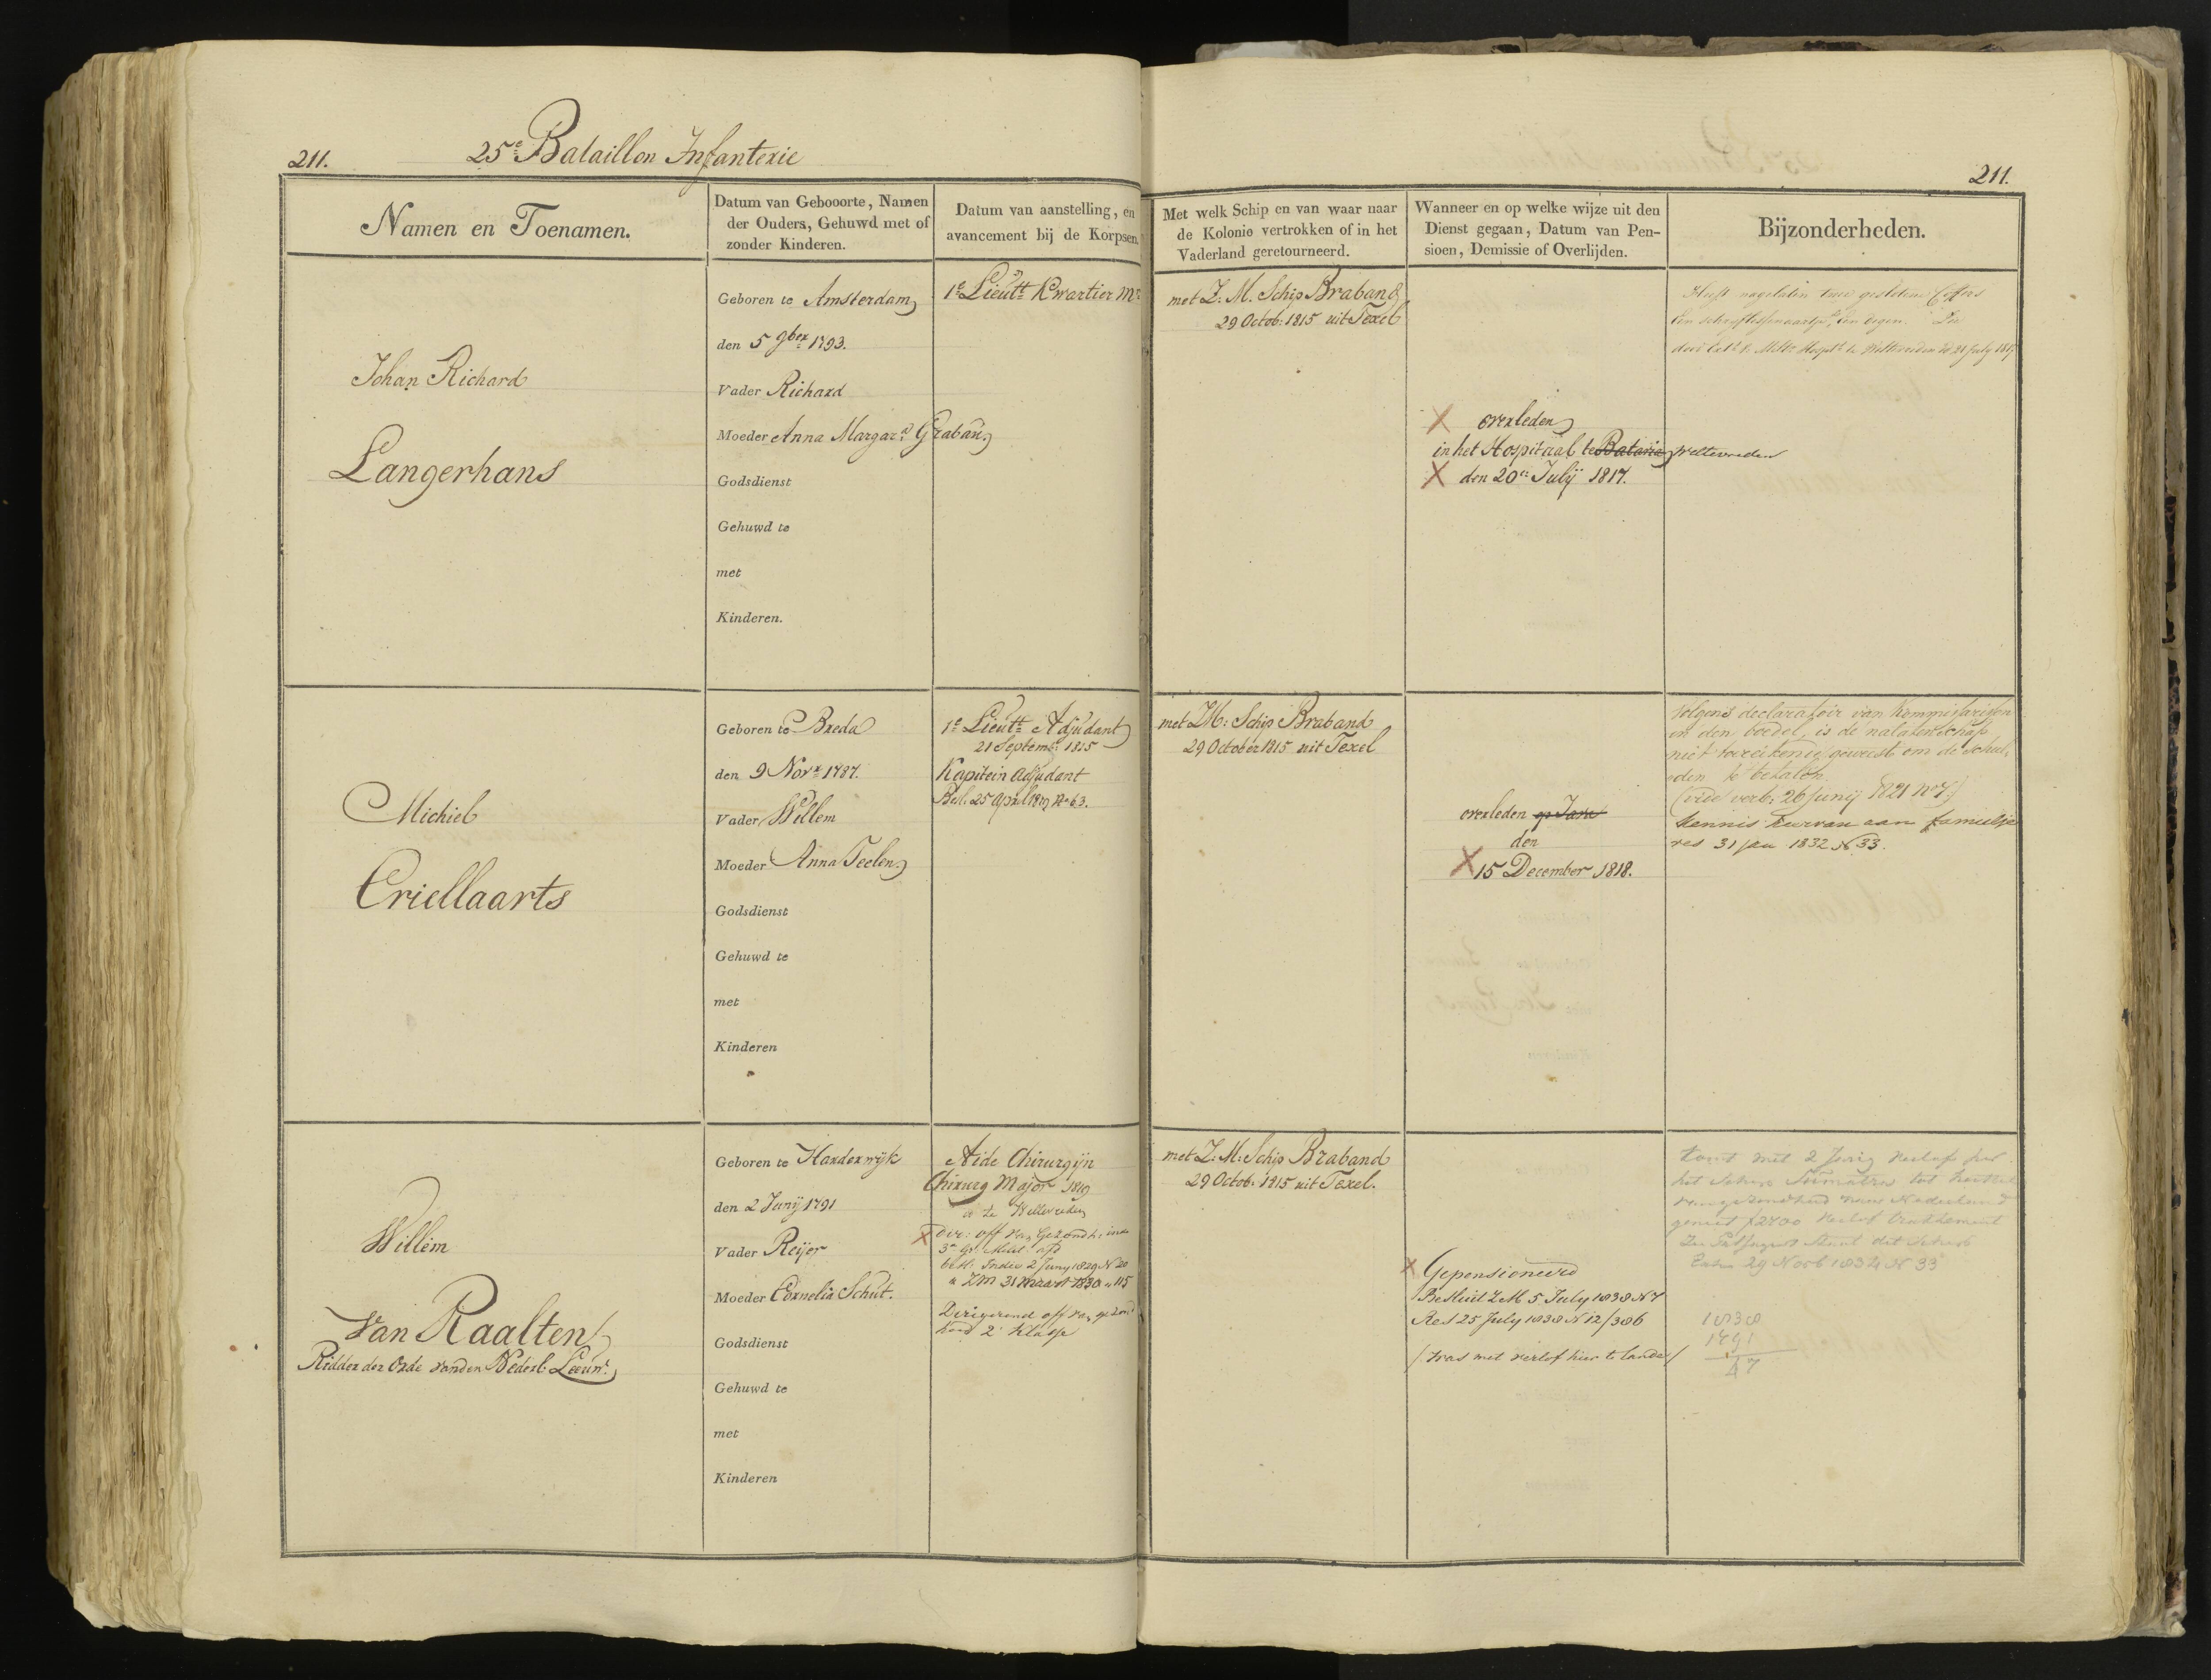 211.
25e Bataillon Infanterie
211.
Namen en Toenamen.
Datum van Gebooorte, Namen
der Ouders, Gehuwd met of
zonder Kinderen.
Datum van aanstelling, en
avancement bij de Korpsen
Met welk Schip en van waar naar
de Kolonie vertrokken of in het
Vaderland geretourneerd.
Wanneer en op welke wijze uit den
Dienst gegaan, Datum van Pen-
sioen, Demissie of Overlijden.
Bijzonderheden.
Johan Richard
Langerhans
Geboren te Amsterdam
den 5 9ber 1793.
Vader Richard
Moeder Anna Margara Graban
Godsdienst
Gehuwd te
met
Kinderen.
1e Lieutt Kwartier Mr
met Z. M. Schip Braband
29 Octob: 1815 uit Texel
overleden
in het Hospitaal te Batavia Weltevreden
den 20en Julij 1817.
Heeft nagelaten twee gesloten Coffers
Een een degen.
door Milt. Hospt te Weltevreden 21 July 1817
Michiel
Criellaarts
Geboren te Breda
den 9 Novr 1787.
Vader Willem
Moeder Anna Teelen
Godsdienst
Gehuwd te
met
Kinderen
1e Lieutt Adjudant
21 Septemr 1815
Kapitein Adjudant
Besl. 25 April 1819 No 63.
met ZM: Schip Braband
29 October 1815 uit Texel
overleden op Java
den
15 December 1818.
Volgens declaratoir van Kommissarissen
in den boedel, is de nalatenschap
niet toereikende geweest om de schul-
den te betalen.
(vide verb: 26 Junij 1821 No 7)
Kennis hiervan aan familje
res 31 jan 1832 N 33.
Willem
Van Raalten
Ridder der Orde van den Nederl: Leeuw.
Geboren te Harderwijk
den 2 Junij 1791
Vader Reijer
Moeder Cornelia Schut.
Godsdienst
Gehuwd te
met
Kinderen
Aide Chirurgijn
Chirurg Major 1819
te Weltevreden
Dir: off van Gezondh:
3e Kl: Milit: afd
besl: Indie 2 Juny 1829 N 20
" ZM 31 Maart 1830 " 115
Dirigerend off van gezond
heid 2e Klasse
met Z: M: Schip Braband
29 Octob. 1815 uit Texel.
Gepensioneerd
Besluit ZM 5 July 1838 N 7
Res 25 July 1838 N 12/386
(was met verlof hier te lande)
komt met 2 Jarig verlof per
het Schip Sumatra tot herstel
van gezondheid naar Nederland
geniet f 2700 verlof traktement
29 Novb 1834 N 33
1838
1791
47